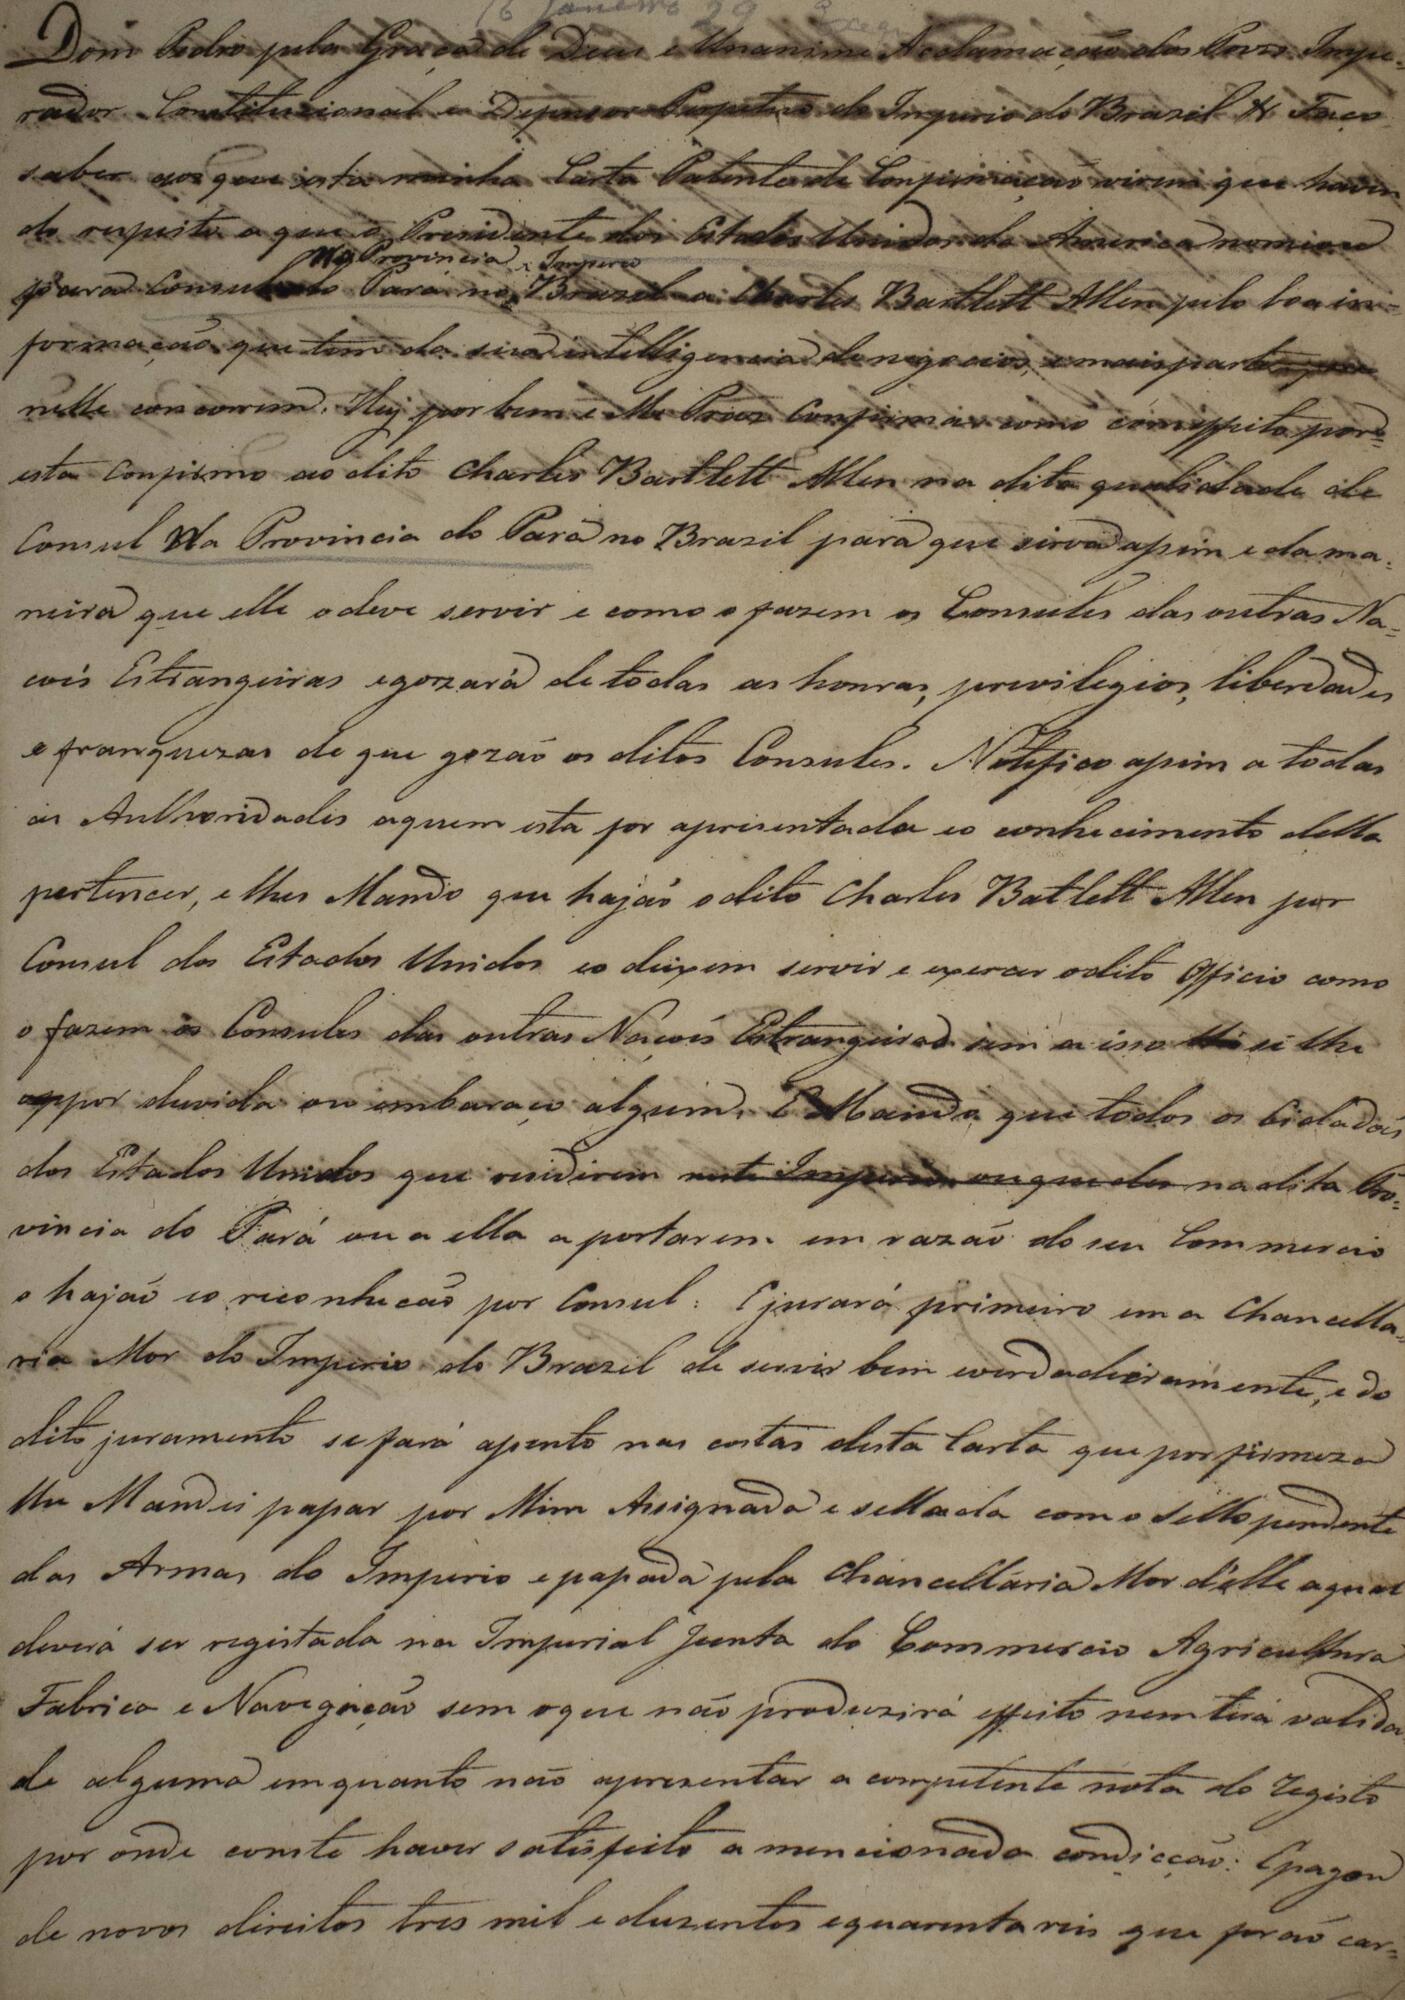 16 Janeiro 29
Dom Pedro pela Graça de Deus e Unanime Acclamação dos Povos Impe-
rador Constitucional e Defensor Perpetuo do Imperio do Brazil &. Faço
saber aos que esta minha Carta Patente de Confirmação virem que haven
do respeito a que o Presidente dos Estados Unidos da America nomiou
Na Provincia Imperio
para Consul do Pará no Brazil a Charles Bartlett Allen pelo boa in-
formação que tem da sua intelligencia de negocios, e mais partes que
nelle concorrem. Hej por bem e Me Praz Confirmar como com effeito por
esta Confirmo ao dito Charles Bartlett Allen na dita qualidade de
Consul Na Provincia do Pará no Brazil para que sirva assim e da ma-
neira que elle o deve servir e como o fazem os Consules das outras Na-
coés Estrangeiras e gozará de todas as honras, previlegios, liberdades
e franquezas de que gozaõ os ditos Consules. Notifico assim a todas
as Authoridades a quem esta for apresentada e o conhecimento della
pertencer, e lhes Mando que hajaõ o dito Charles Batlett Allen por
Consul dos Estados Unidos e o deixem servir e exercer o dito Officio como
o fazem os Consules das outras Naçoés Estrangeiras sem a isso se lhe
oppor duvida ou embaraço algum. E Manda que todos os Cidadaõs
dos Estados Unidos que residirem neste Imperio ou que dos na dita Pro-
vincia do Pará ou a ella aportarem em razaõ do seu Commercio
o hajaõ e o reconhecaõ por Consul: E jurará primeiro em a Chancella-
ria Mor do Imperio do Brazil de servir bem e verdadeiramente, e do
dito juramento se fará assento nas costas desta Carta que por firmeza
lhe Mandei passar por Mim Assignada e sellada com o Sello pendente
das Armas do Imperio e passada pela Chancellaria Mor d'elle a qual
deverá ser registada na Imperial Junta do Commercio Agricultura
Fabrica e Navegação sem o que naõ produzirá effeito nem terá valida
de alguma em quanto naõ apresentar a competente nota do registo
por onde conste haver satisfeito a mencionada condicçaõ: E pagou
de novos direitos tres mil e duzentos e quarenta reis que foraõ car-